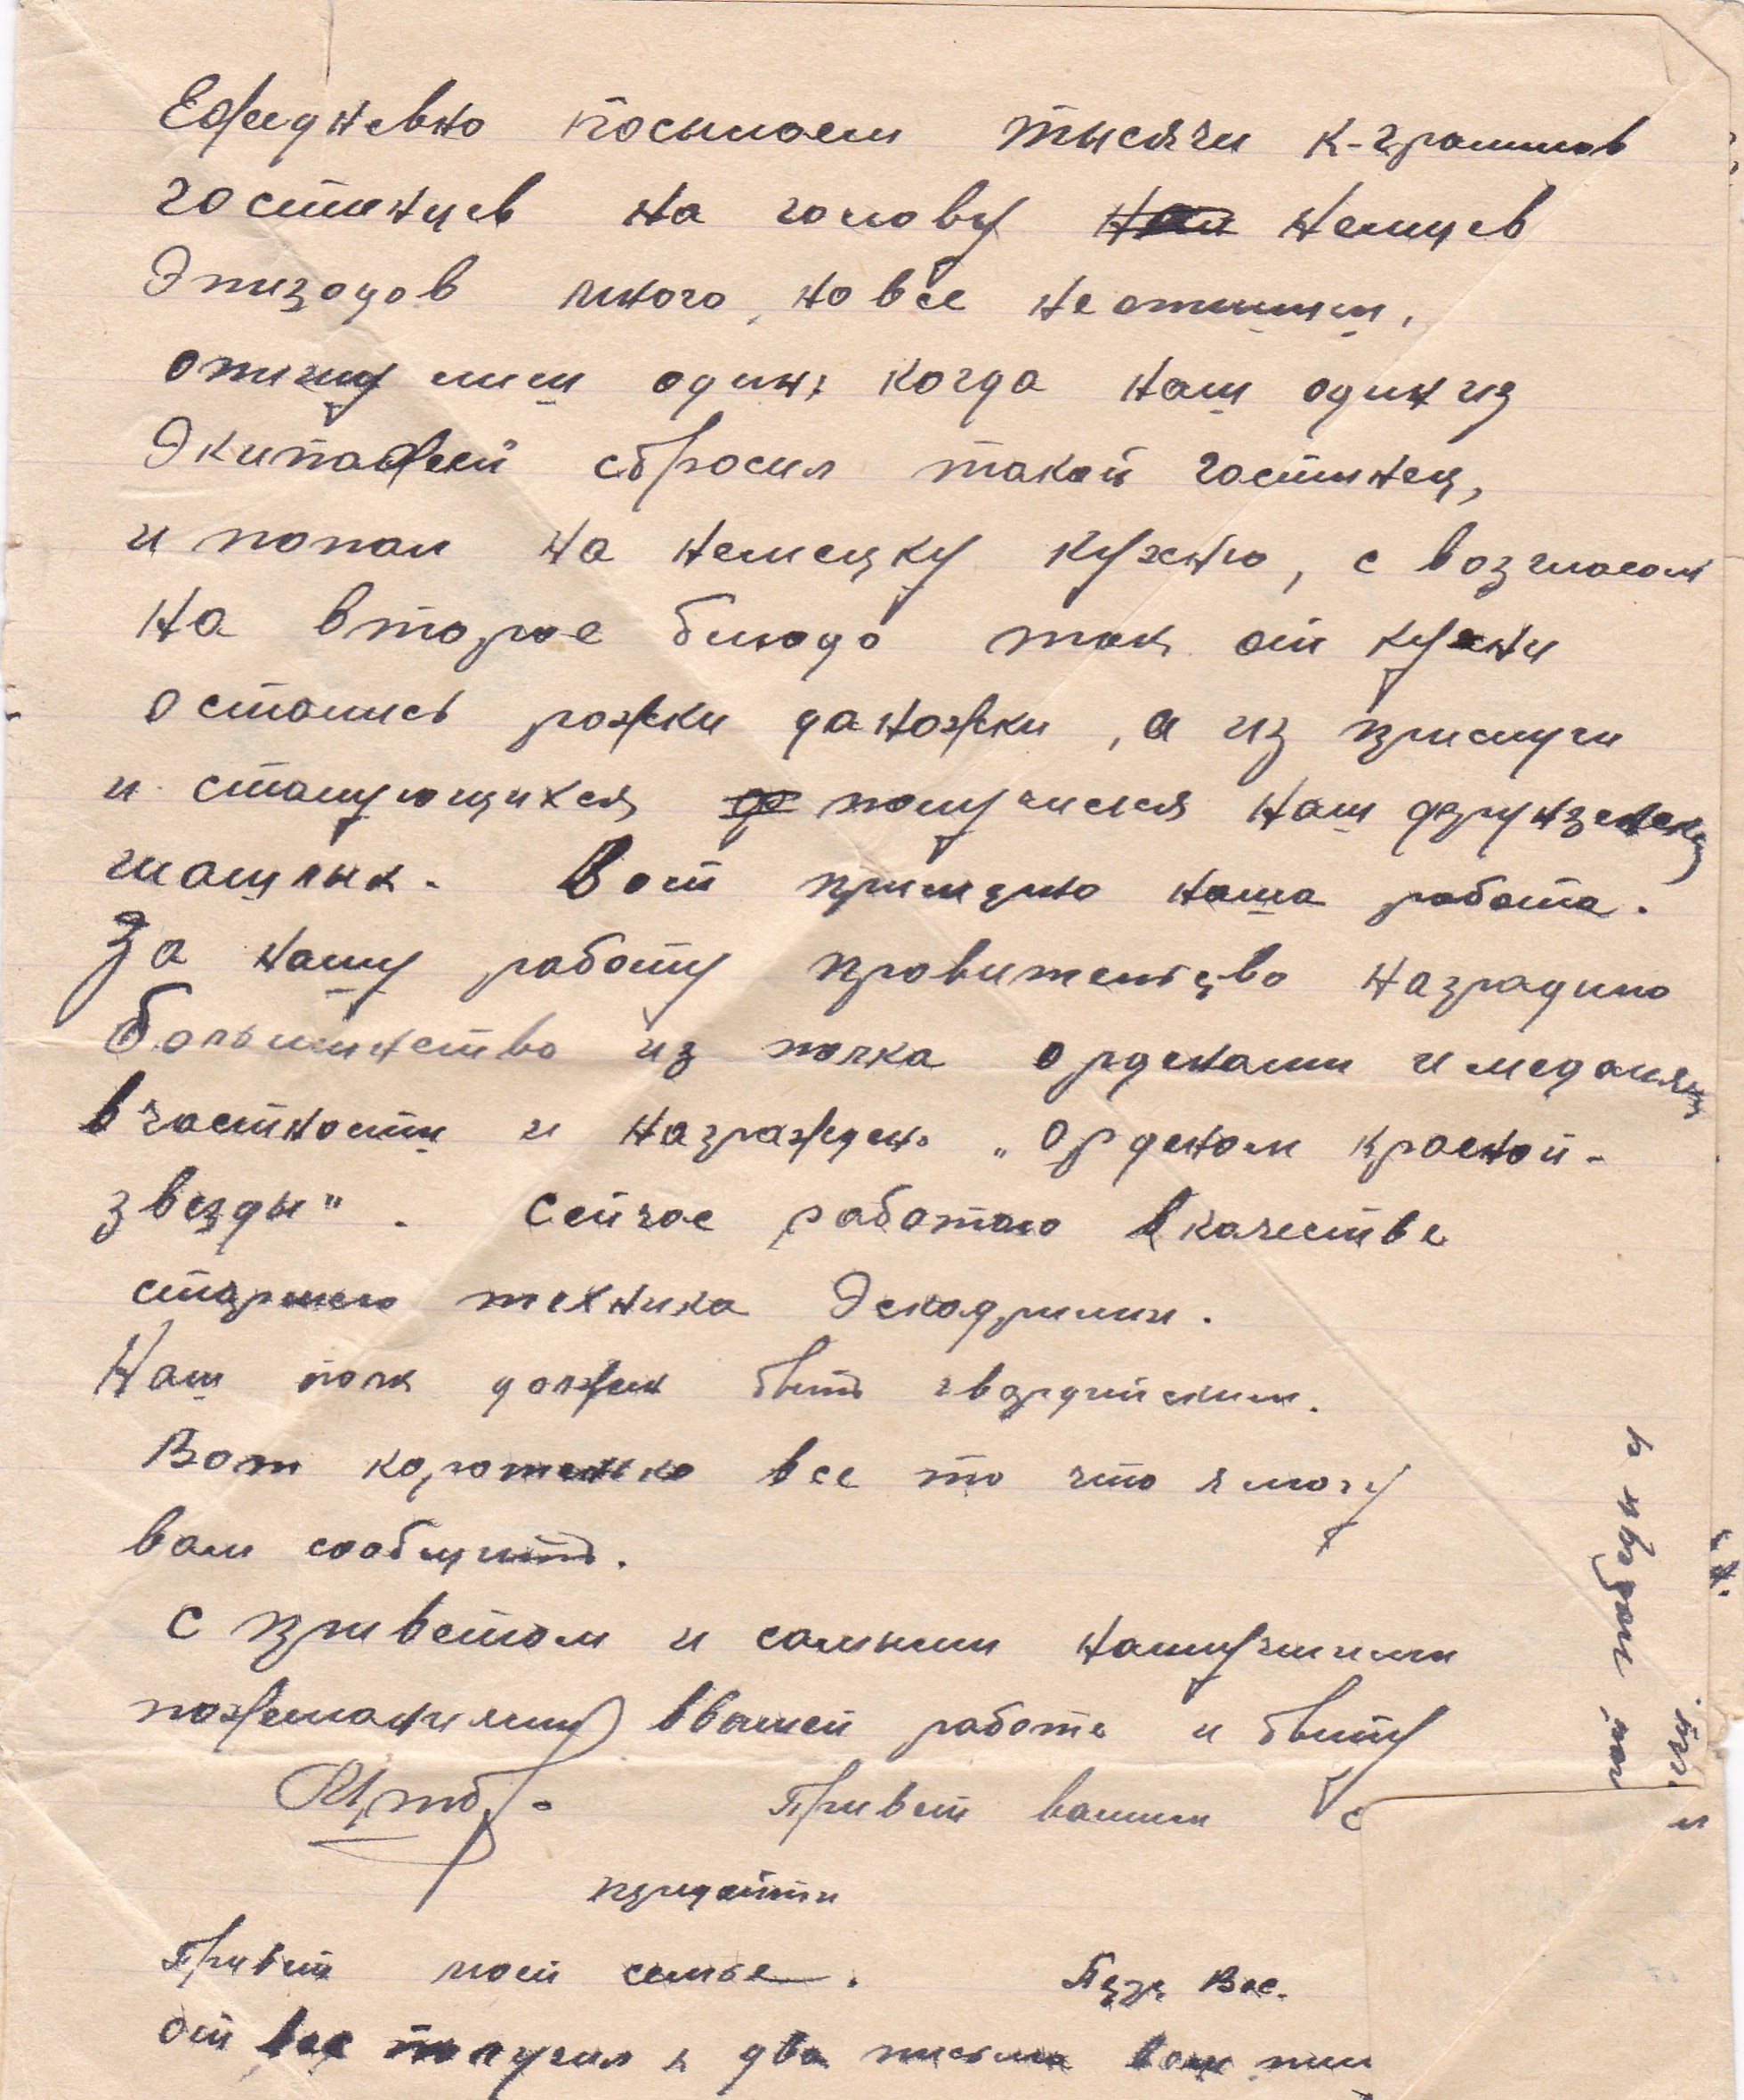 Ежедневно посылаем тысячи к-граммов
гостинцев на голову немцев
Эпизодов много, но все не опишеш,
опишу лиш один, когда наш один из
Экипажей сбросил такой гостинец,
и попал на немецку кухню, с возгласом
на второе блюдо так от кухни
остались рожки да ножки, а из прислуги
и столующихся получился наш
шашлык. Вот примерно наша работа.
За нашу работу правительство наградило
большинство из полка орденами и медалями
в частности и награжден „Орденом красной-
звезды". Сейчас работаю в качестве
старшего техника Эскадрильи.
Наш полк должен быть гвардейским.
Вот коротенько все то что я могу
вам сообщить.
С приветом и самыми наилучшими
пожеланиями в вашей работе и быту
Привет вашим с
передайти
Привет моей семье. Вас.
От вас получил я два письма